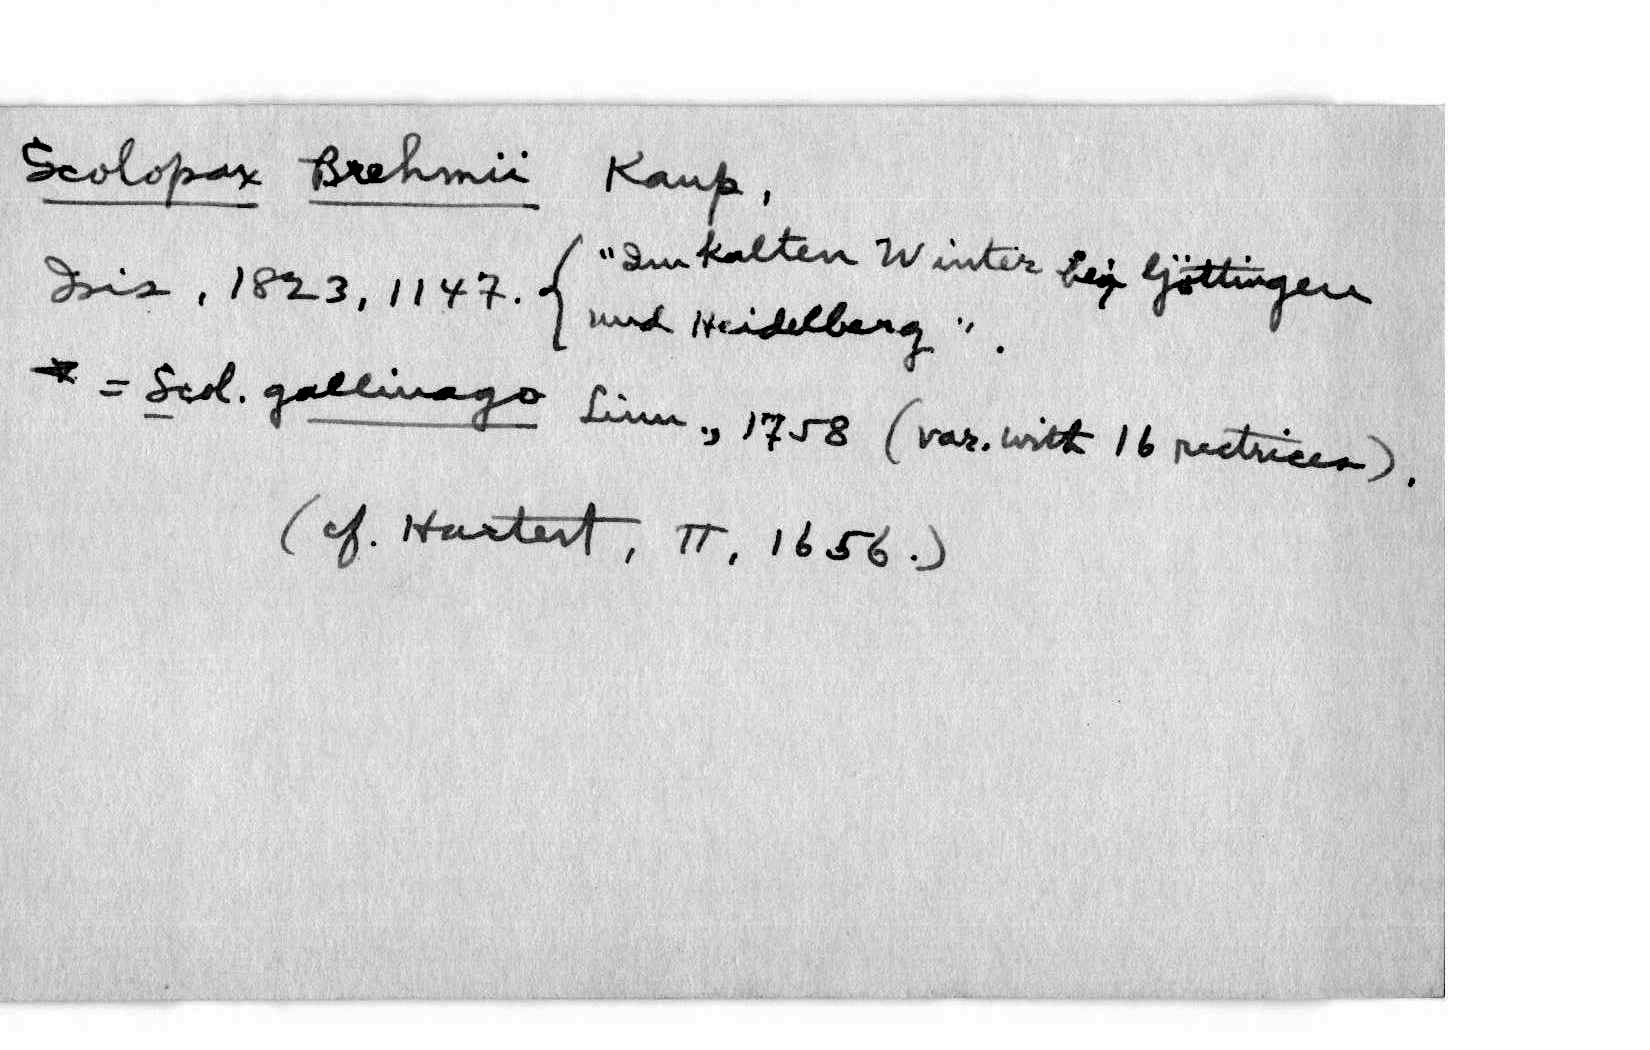 Scolopax Brehmii Kaup,
Isis, 1823, 1147. { "Im kalten Winter bei Göttingen
und Heidelberg".
= Scol. gallinago Linn., 1758 (var. with 16 rectrices).
(cf. Hartert, II, 1656.)